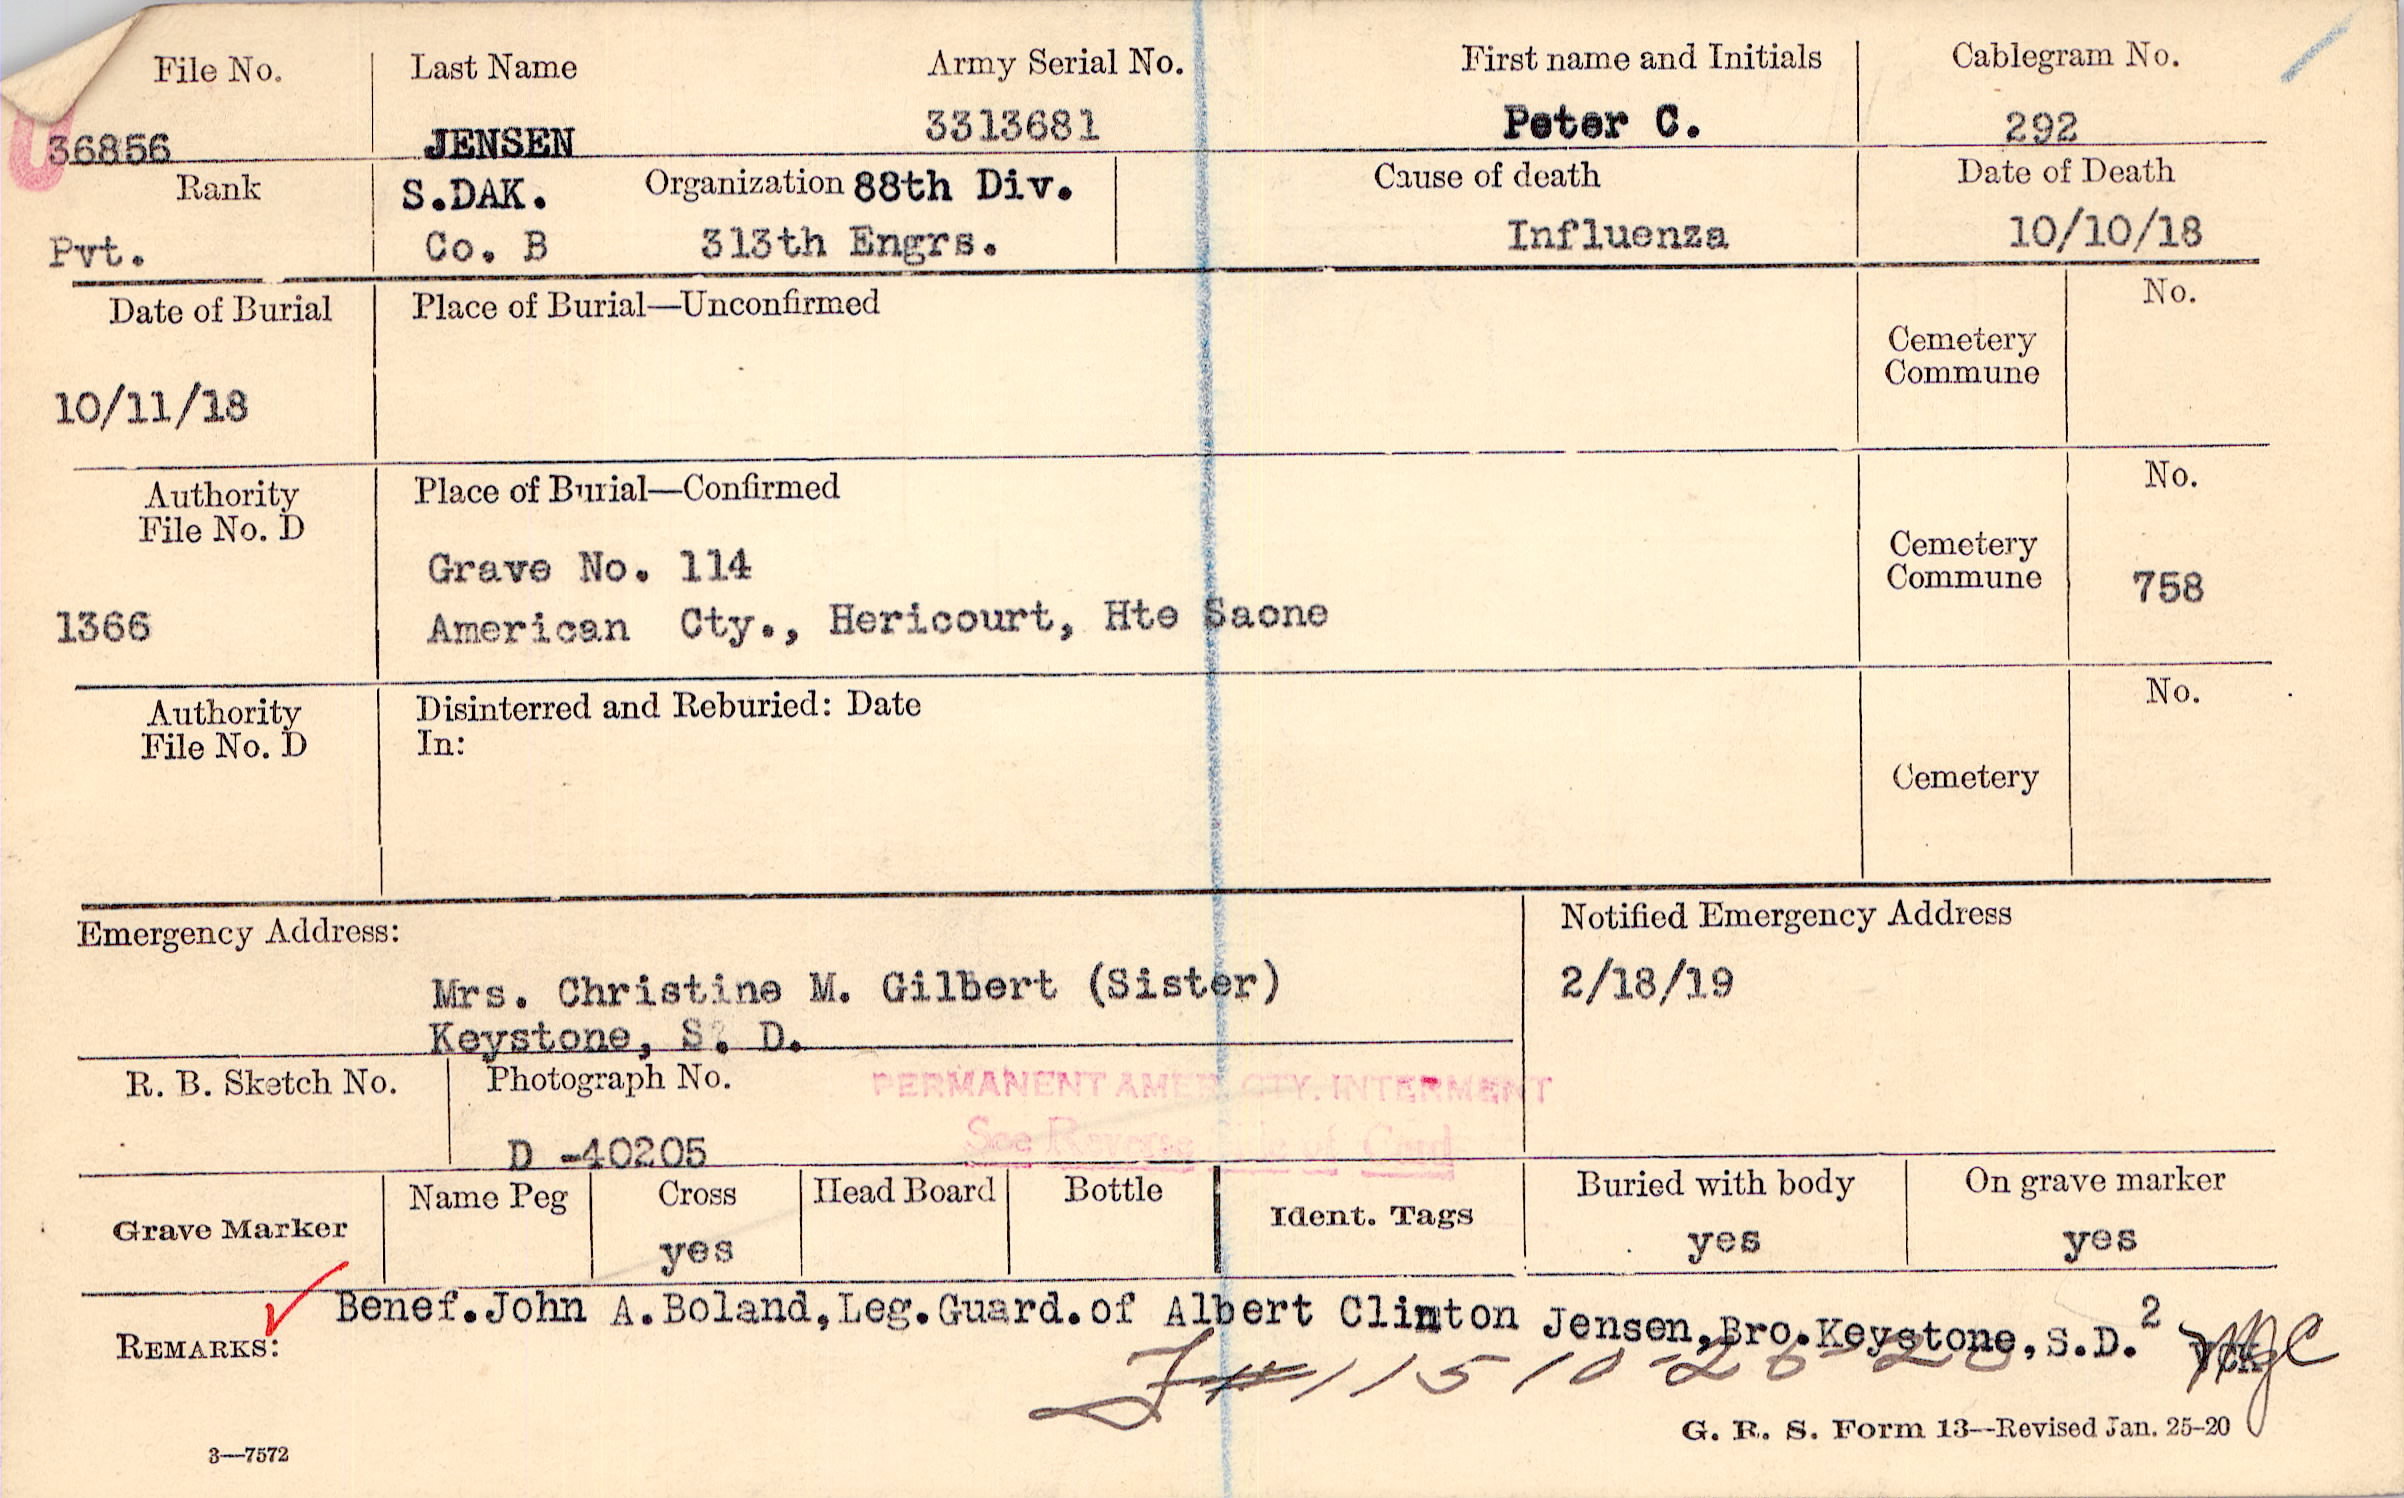 File No. Last Name Army Serial No. First name and Initials Cablegram No.
36856 JENSEN 3313681 Peter C. 292
Rank S.DAK. Organization 88th Div. Cause of death Date of Death
Pvt. Co. B 313th Engrs. Influenza 10/10/18
Date of Burial Place of Burial—Unconfirmed No.
Cemetery
Commune
10/11/18
Authority Place of Burial—Confirmed No.
File No. D
Cemetery
Grave No. 114 Commune 758
1366 American Cty., Hericourt, Hte Saone
Authority Disinterred and Reburied: Date No.
File No. D In:
Cemetery
Emergency Address: Notified Emergency Address
Mrs. Christine M. Gilbert (Sister) 2/18/19
Keystone, S. D.
R. B. Sketch No. Photograph No. PERMANENT AMER. CTY. INTERMENT
See Reverse Side of Card
D -40205
Grave Marker Name Peg Cross Head Board Bottle Ident. Tags Buried with body On grave marker
yes yes yes
Benef.John A.Boland,Leg.Guard.of Albert Clinton Jensen,Bro.Keystone,S.D. 2
REMARKS: # 115 10-26-20
G. R. S. Form 13—Revised Jan. 25-20
3—7572